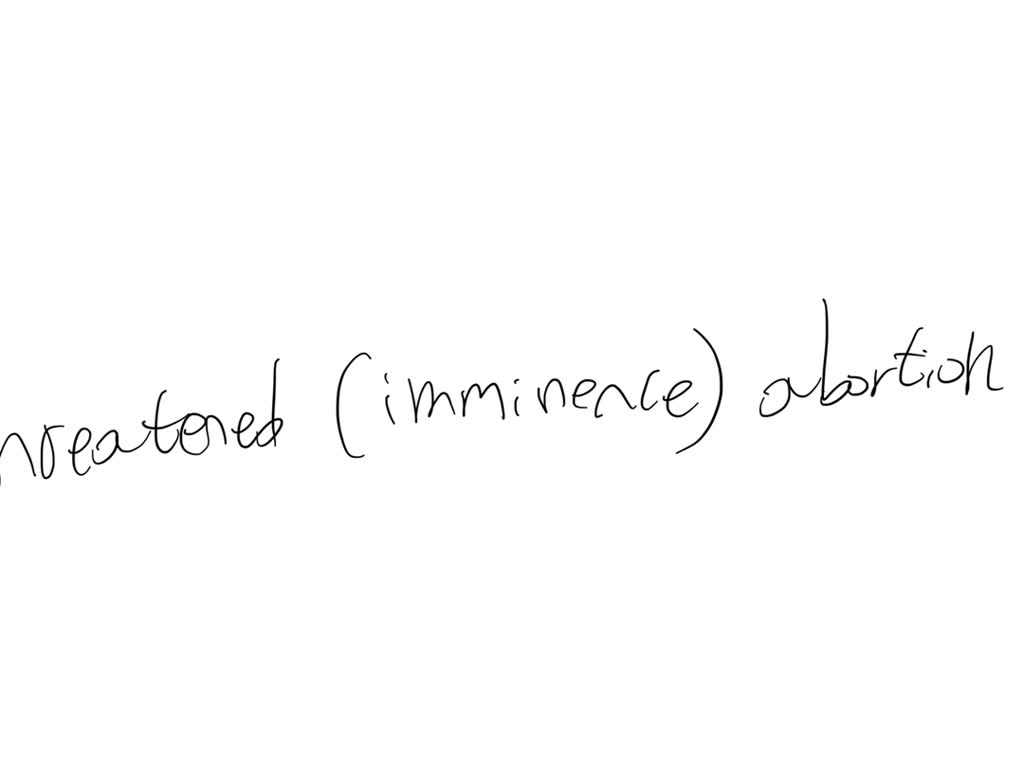 hreatened (imminence) abortion